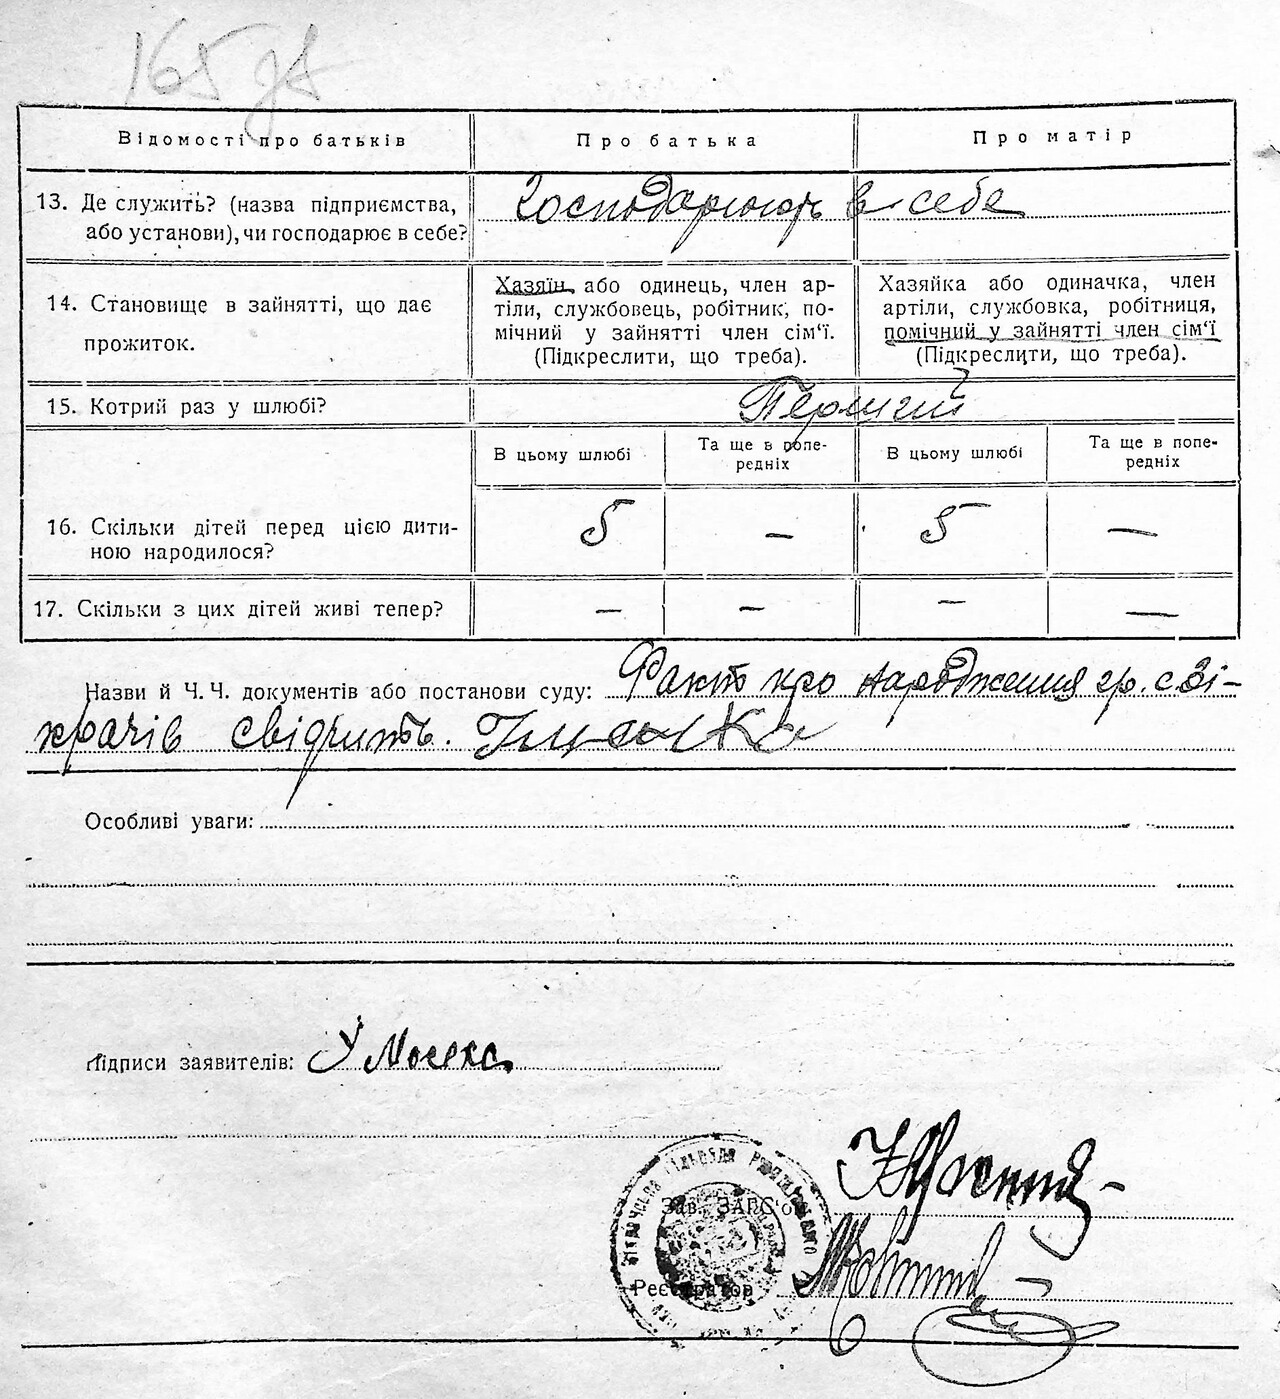 165 
Відомості про батьків Про батька Про матір
13. Де служить? (назва підприємства, Господарюють в себе
або установи), чи господарює в себе?
14. Становище в зайнятті, що дає
прожиток.
Хазяїн або одинець, член ар-
тіли, службовець, робітник, по-
мічний у зайнятті член сім'ї.
(Підкреслити, що треба).
Хазяйка або одиначка, член
артіли, службовка, робітниця,
помічний у зайнятті член сім'ї
(Підкреслити, що треба).
15. Котрий раз у шлюбі? Перший
В цьому шлюбі Та ще в попе-
редніх В цьому шлюбі Та ще в попе-
редніх
16. Скільки дітей перед цією дити-
ною народилося? 5 — 5 —
17. Скільки з цих дітей живі тепер? — — — —
Назви й Ч. Ч. документів або постанови суду: Факт про народження гр. с. Зі-
храчів свідчить.
Особливі уваги:
Підписи заявителів: У Мосека
Зав. ЗАГС'ом
Реєстратор